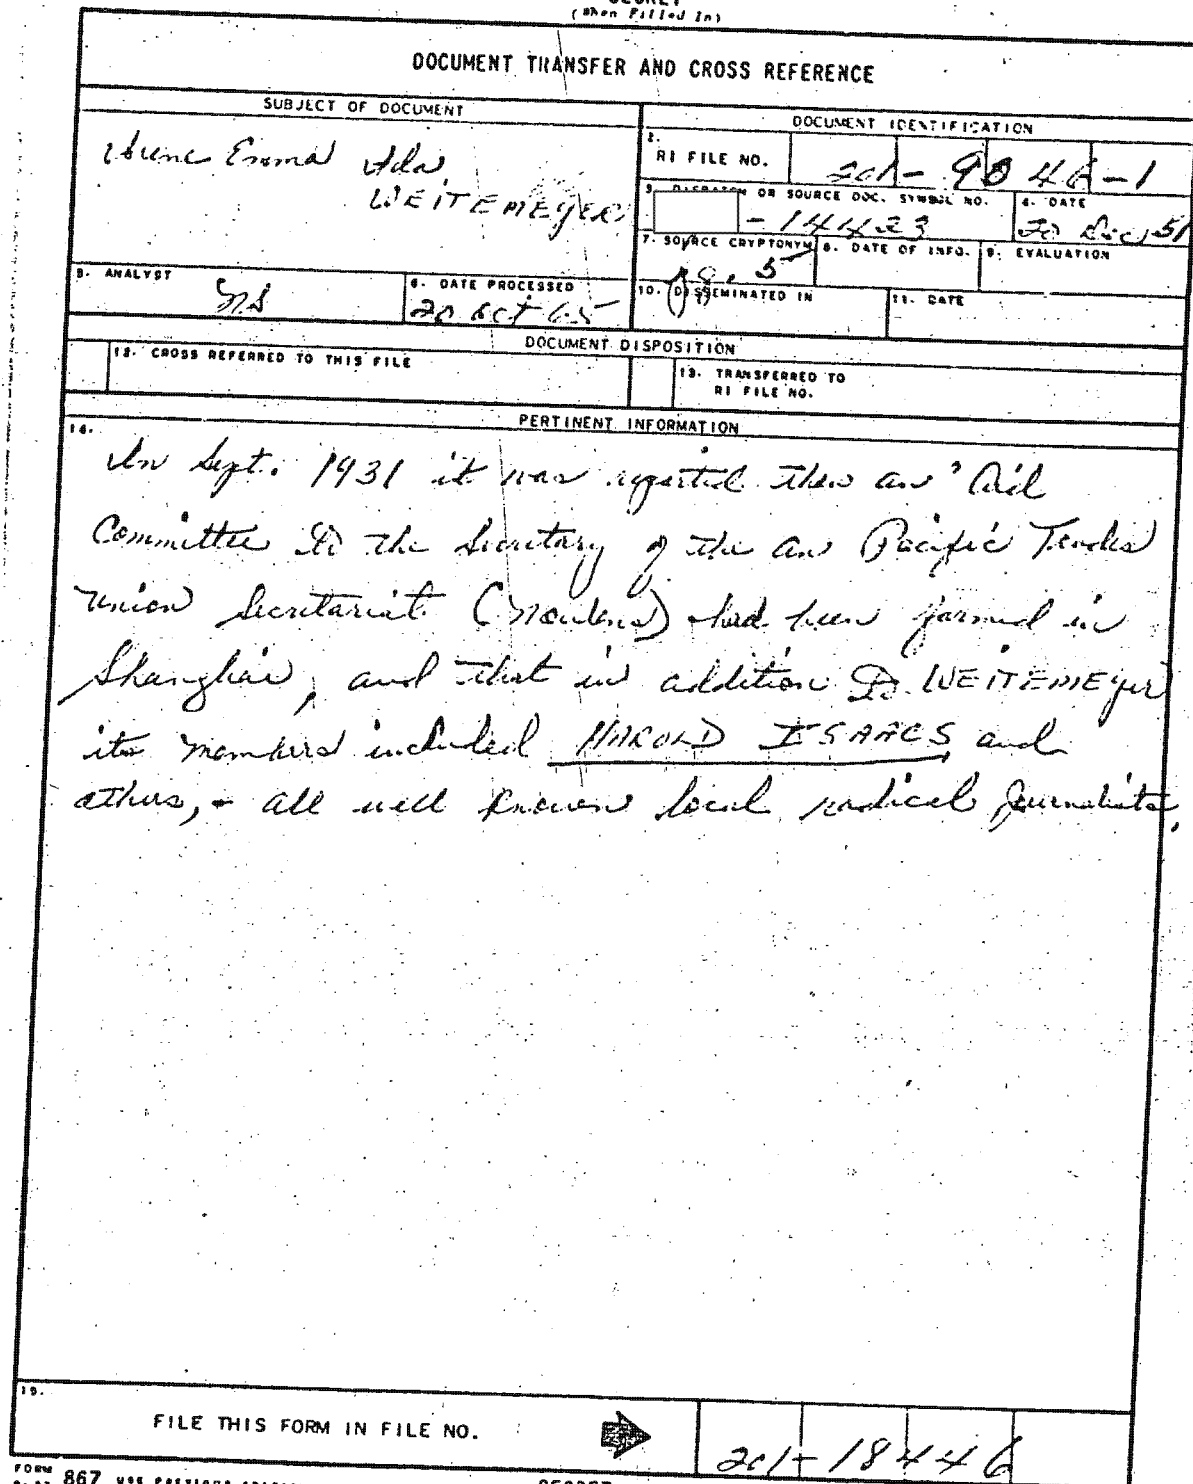 (When Filled In)
DOCUMENT TRANSFER AND CROSS REFERENCE
SUBJECT OF DOCUMENT
Irene Emma Ida
WEITEMEYER
DOCUMENT IDENTIFICATION
2. RI FILE NO. 201-9046-1
3. DISPATCH OR SOURCE DOC. SYMBOL NO. -14423
4. DATE 20 Dec 51
7. SOURCE CRYPTONYM pg. 5
8. DATE OF INFO.
9. EVALUATION
5. ANALYST ns
6. DATE PROCESSED 20 Oct 65
10. DISSEMINATED IN
11. DATE
DOCUMENT DISPOSITION
12. CROSS REFERRED TO THIS FILE
13. TRANSFERRED TO
RI FILE NO.
PERTINENT INFORMATION
14.
In Sept. 1931 it was reported that an "Aid
Committee to the Secretary of the Pacific Trades
Union Secretariat (Noulens) had been formed in
Shanghai, and that in addition to WEITEMEYER
its members included HAROLD ISAACS and
others, - all well known local radical journalists.
15.
FILE THIS FORM IN FILE NO. 201-18446
FORM 867 USE PREVIOUS